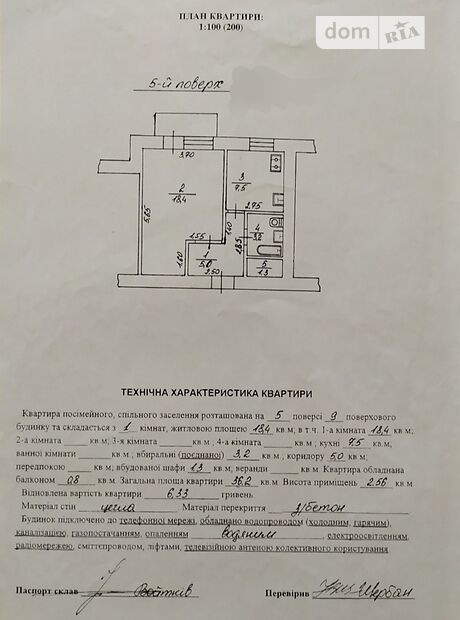 ПЛАН КВАРТИРИ:
1:100 (200)
dom RIA
5-й поверх
3,70
2
18,4
5,65
3
7,5
2,75
1,40
4
3,2
1,85
1,55
1,60
1
5,0
2,50
5
1,3
ТЕХНІЧНА ХАРАКТЕРИСТИКА КВАРТИРИ
Квартира посімейного, спільного заселення розташована на 5 поверсі 9 поверхового
будинку та складається з 1 кімнат, житловою площею 18,4 кв м; в т.ч. 1-а кімната 18,4 кв м;
2-а кімната кв м; 3-я кімната кв м, 4-а кімната кв м, кухні 7,5 кв м,
ванної кімнати кв м, вбиральні (поєднаної) 3,2 кв м, коридору 5,0 кв м,
передпокою кв м; вбудованої шафи 1,3 кв м, веранди кв м Квартира обладнана
балконом 0,8 кв м. Загальна площа квартири 36,2 кв м. Висота приміщень 2,56 кв м.
Відновлена вартість квартири 6,33 гривень.
Матеріал стін цегла Матеріал перекриття з/бетон
Будинок підключено до телефонної мережі, обладнано водопроводом (холодним, гарячим),
каналізацією, газопостачанням, опаленням водяним, електроосвітленням,
радіомережею, сміттєпроводом, ліфтами, телевізійною антеною колективного користування
Паспорт склав Перевірив Щербан